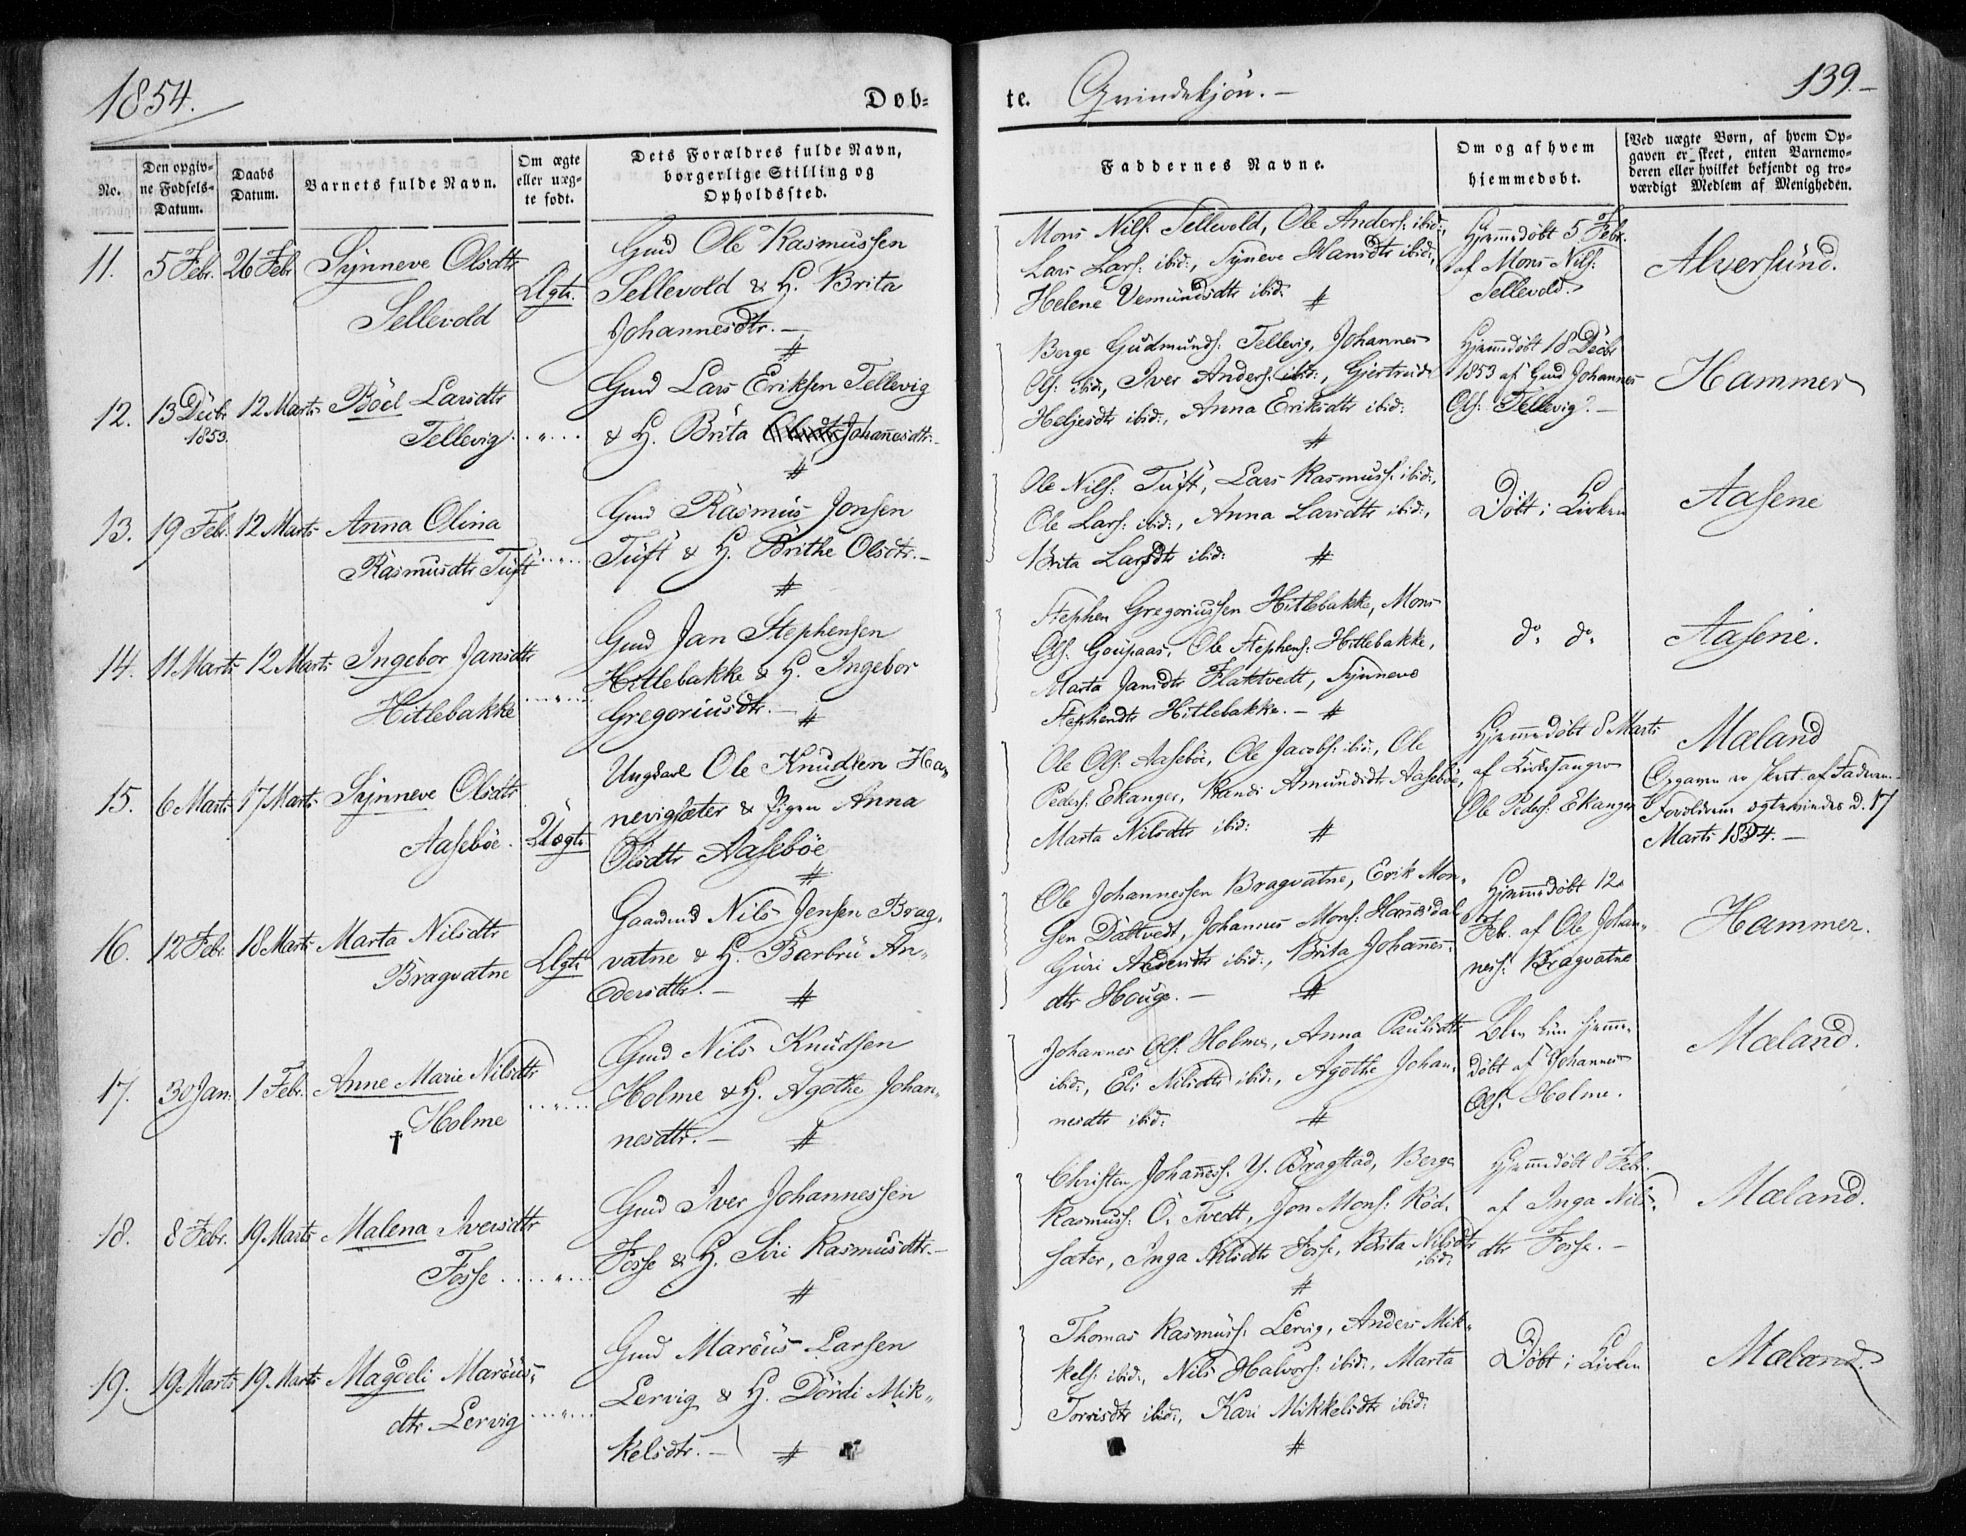 1854.
Døb-
te. Qvindekjön.-
139.-
No.
Den opgiv-
ne Fødsels-
Datum.
Daabs
Datum.
Barnets fulde Navn.
Om ægte
eller uæg-
te født.
Dets Forældres fulde Navn,
borgerlige Stilling og
Opholdssted.
Faddernes Navne.
Om og af hvem
hjemmedøbt.
[Ved uægte Børn, af hvem Op-
gaven er skeet, enten Barnemo-
deren eller hvilket bekjendt og tro-
værdigt Medlem af Menigheden.
11. 5 Febr. 26 Febr Synneve Olsdtr
Sellevold
Ægte.
Gmd Ole Rasmussen
Sellevold & H. Brita
Johannesdtr.-
#
Mons Nils: Sellevold, Ole Anders: ibid:,
Lars Lars: ibid:, Syneve Hansdtr ibid:,
Helene Vemundsdtr ibid: #
Hjemmedøbt 5 Febr.
af Mons Nils:
Sellevold.
Alversund.
12. 13 Decbr 12 Marts Böel Larsdtr
1853.
Tellevig. .."...
Gmd Lars Eriksen Tellevig
& H. Brita Johannesdtr.-
#
Berge Gudmunds: Tellevig, Johannes
Ols: ibid:, Iver Anders: ibid:, Gjertrude
Heljesdtr ibid:, Anna Eriksdtr ibid:
#
Hjemmdøbt 18 Decbr
1853 af Gmd Johannes
Ols: Tellevig.-
Hammer
13. 19 Feb: 12 Marts Anna Olina
Rasmusdtr Tuft ..."...
Gmd Rasmus Jonsen
Tuft & H. Brithe Olsdtr.-
#
Ole Nils: Tuft, Lars Rasmuss: ibid:,
Ole Lars: ibid:, Anna Larsdtr ibid:,
Brita Larsdtr ibid: #
Döbt i Kirken
Aasene
14. 11 Marts 12 Marts Ingebor Jansdtr
Hitlebakke ..."...
Gmd Jan Stephensen
Hitlebakke & H. Ingebor
Gregoriusdtr.- #
Stephen Gregoriussen Hitlebakke, Mons
Ols: Goupaas, Ole Stephens: Hitlebakke,
Marta Jansdtr Flaktvedt, Synneve
Stephensdtr Hitlebakke.- #
do. do.
Aasene.
15. 6 Marts 17 Marts Synneve Olsdtr
Aasebøe. Uægte
Ungkarl Ole Knudsen Ha-
nevigsæter & Pigen Anna
Olsdtr Aasebøe
#
Ole Ols: Aasebøe, Ole Jacobs: ibid:, Ole
Peders: Ekanger, Randi Amundsdtr Aasebøe,
Marta Nilsdtr ibid: #
Hjemmedøbt 8 Marts
af Kirkesanger
Ole Peders: Ekanger
Mæland
Opgaven er skeet af Faderen-
Forældrene ægteviedes d. 17
Marts 1854.-
16. 12 Feb: 18 Marts Marta Nilsdtr
Bragvatne Ægte
Gaardmd Nils Jensen Brag-
vatne & H. Barbru An-
dersdtr.- #
Ole Johannessen Bragvatne, Erik Mon-
sen Dattvedt, Johannes Mons: Hannisdal
Guri Andersdtr ibid:, Brita Johannes-
dtr Houge.- #
Hjemmedøbt 12
Feb. af Ole Johan-
ness: Bragvatne
Hammer.
17. 30 Jan. 1 Febr. Anne Marie Nilsdtr
† Holme ..."...
Gmd Nils Knudsen
Holme & H. Agothe Johan-
nesdtr.- #
Johannes Ols: Holme, Anna Paulsdtr
ibid:, Eli Nilsdtr ibid:, Agothe Johan-
nesdtr ibid: #
Blev kun hjemme-
døbt af Johannes
Ols: Holme.
Mæland.
18. 8 Febr. 19 Marts Malena Iversdtr
Fosse ...."...
Gmd Iver Johannessen
Fosse & H. Siri Rasmusdtr.-
#
Christen Johanness: Y. Bragstad, Berge
Rasmuss: Ö. Tvedt, Jon Mons: Röd-
sæter, Inga Nilsdtr Fosse, Brita Nilsdtr
ibid:
#
Hjemmedöbt 8 Febr.
af Inga Nils-
dtr Fosse.-
Mæland.
19. 19 Marts 19 Marts Magdeli Marcus-
dtr Lervig ..."...
Gmd Marcus Larsen
Lervig & H. Dördi Mik-
kelsdtr.- #
Thomas Rasmuss: Lervig, Anders Mik-
kels: ibid:, Nils Halvors: ibid:, Marta
Torrisdtr ibid:, Kari Mikkelsdtr ibid:
#
Döbt i Kirken
Mæland.